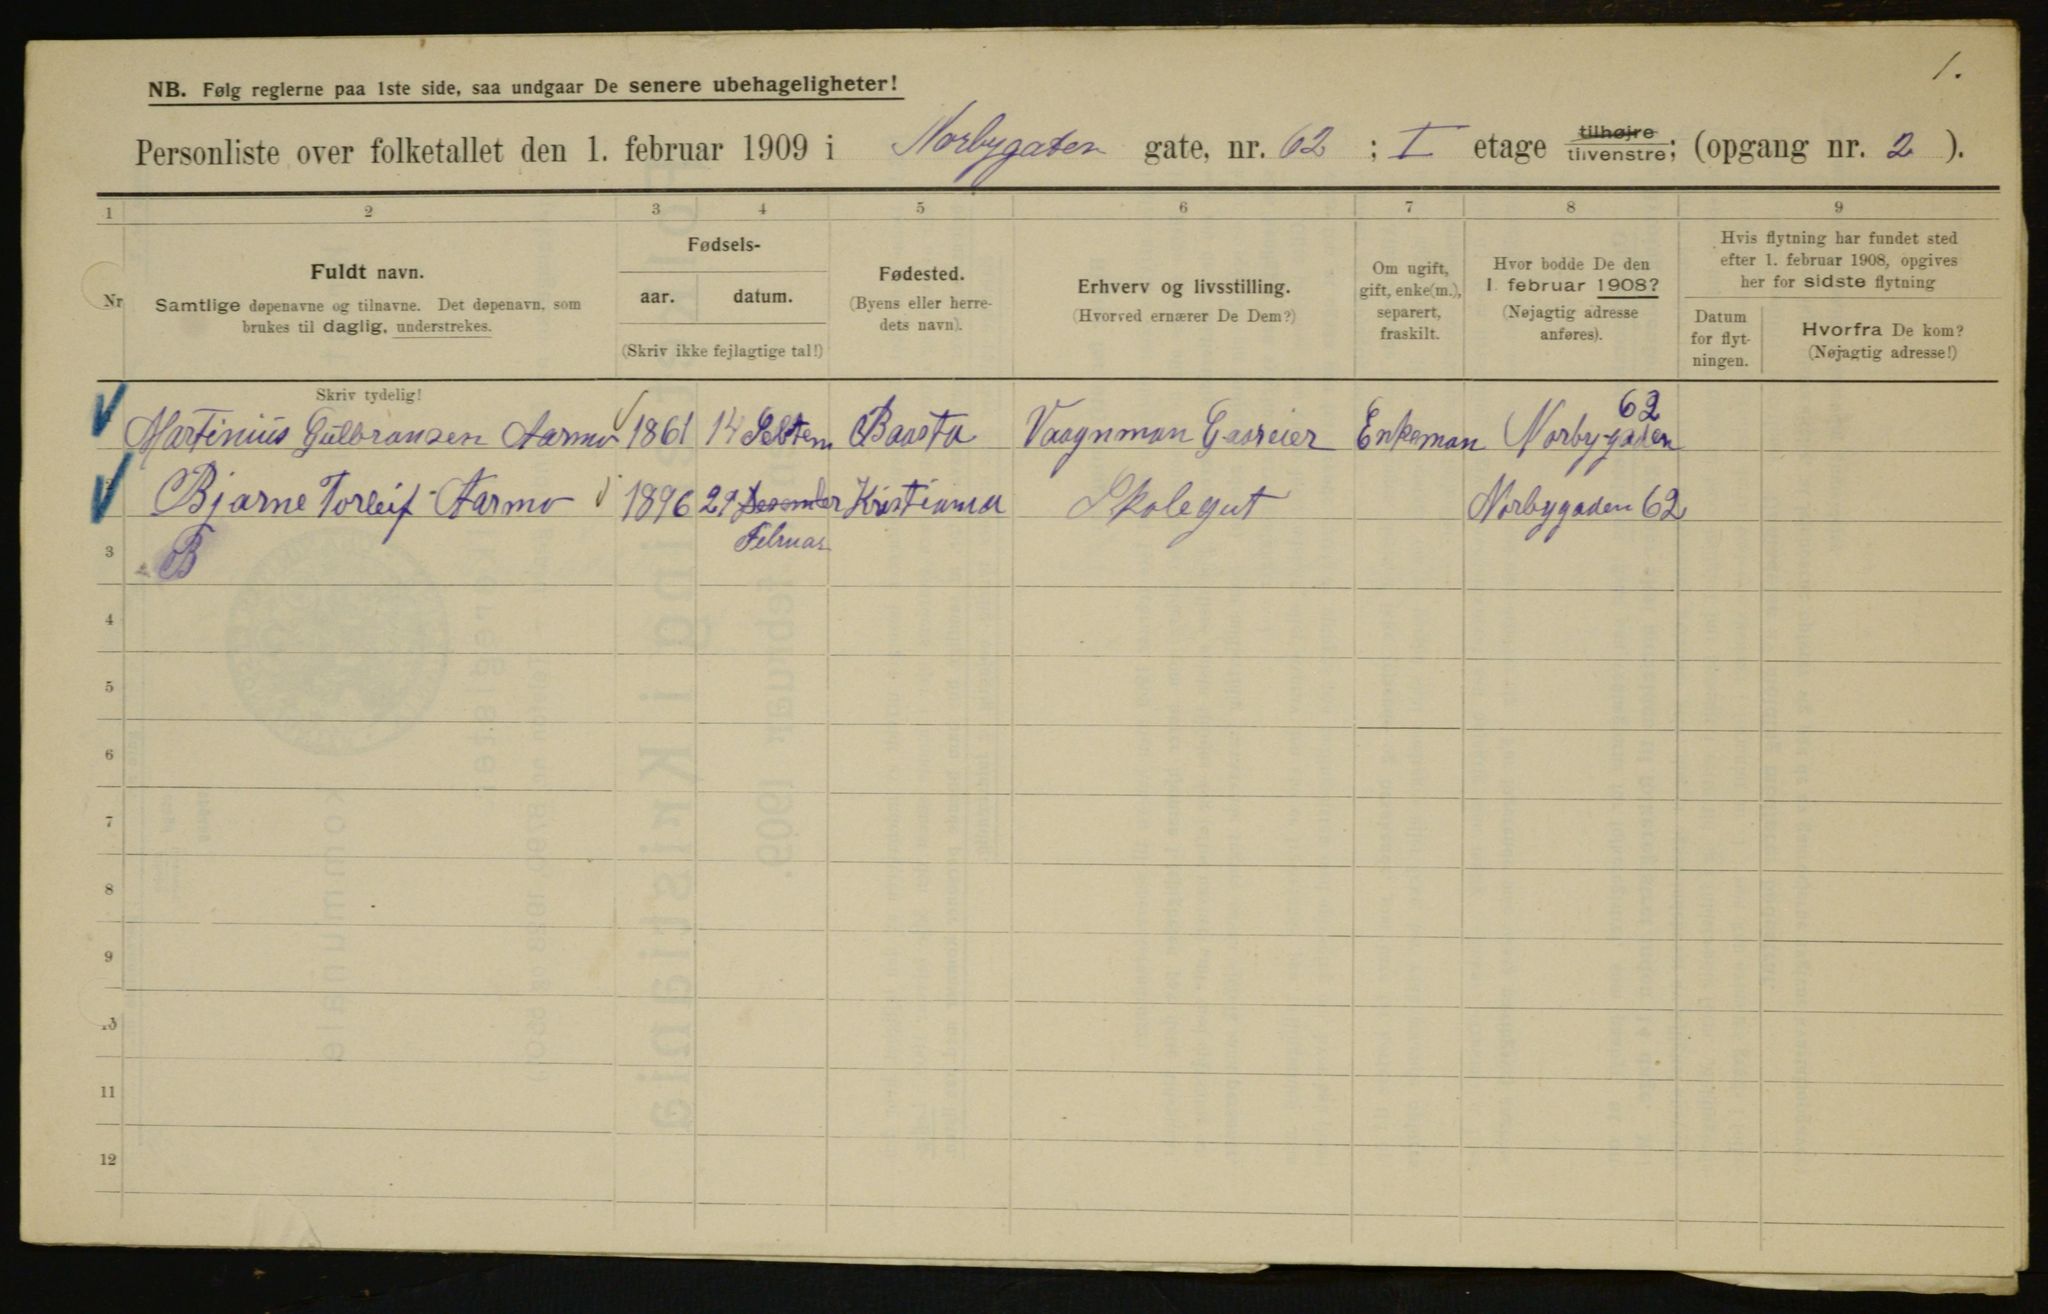 1.
NB. Følg reglerne paa 1ste side, saa undgaar De senere ubehageligheter!
Personliste over folketallet den 1. februar 1909 i Norbygaten gate, nr. 62 ; I etage tilhøjre tilvenstre; (opgang nr. 2 ).
1 2 3 4 5 6 7 8 9
Nr
Fuldt navn.
Samtlige døpenavne og tilnavne. Det døpenavn, som
brukes til daglig, understrekes.
Fødsels-
aar. datum.
(Skriv ikke fejlagtige tal!)
Fødested.
(Byens eller herre-
dets navn).
Erhverv og livsstilling.
(Hvorved ernærer De Dem?)
Om ugift,
gift, enke(m.),
separert,
fraskilt.
Hvor bodde De den
1. februar 1908?
(Nøjagtig adresse
anføres).
Hvis flytning har fundet sted
efter 1. februar 1908, opgives
her for sidste flytning
Datum
for flyt-
ningen.
Hvorfra De kom?
(Nøjagtig adresse!)
Skriv tydelig!
Martinius Gulbransen Aarmo 1861 14 Sebtem Baasta Vaagnman Gaareier Enkeman Norbygaden 62
Bjarne Torleif Aarmo 1896 29 Desember Kristiania Skolegut Norbygaden 62
Februar
3 B
4
5
6
7
8
9
10
11
12